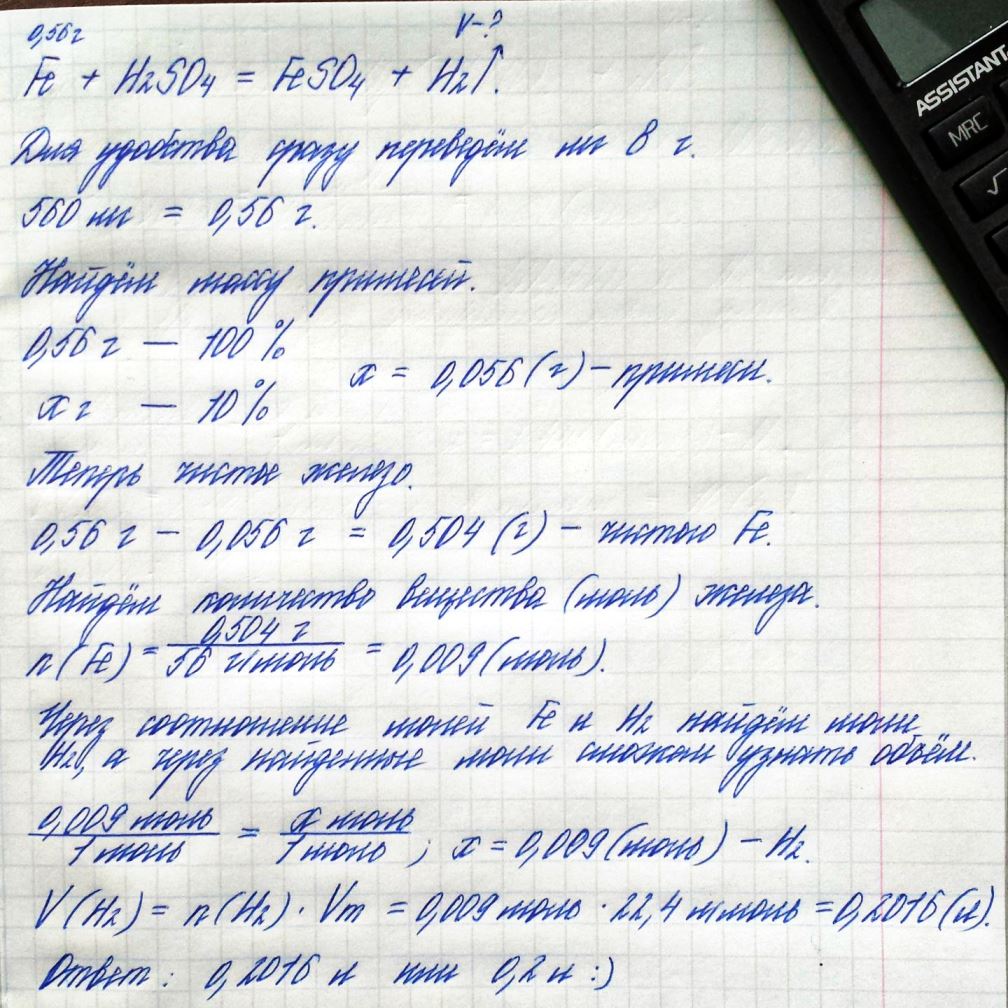 0,56г V-?
Fe + H2SO4 = FeSO4 + H2↑.
Для удобства сразу переведём мг в г.
560 мг = 0,56 г.
Найдём массу примесей.
0,56 г — 100 %
x = 0,056 (г) – примеси.
x г — 10 %
Теперь чистое железо.
0,56 г – 0,056 г = 0,504 (г) – чистого Fe.
Найдём количество вещества (моль) железа.
n(Fe) = 0,504 г / 56 г/моль = 0,009 (моль).
Через соотношение молей Fe и H2 найдём моли
H2, а через найденные моли сможем узнать объём.
0,009 моль / 1 моль = x моль / 1 моль ; x = 0,009 (моль) – H2.
V(H2) = n(H2) · Vm = 0,009 моль · 22,4 л/моль = 0,2016 (л).
Ответ: 0,2016 л или 0,2 л :)
ASSISTANT
MRC
√